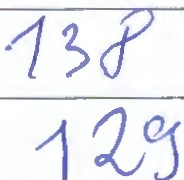 138
129